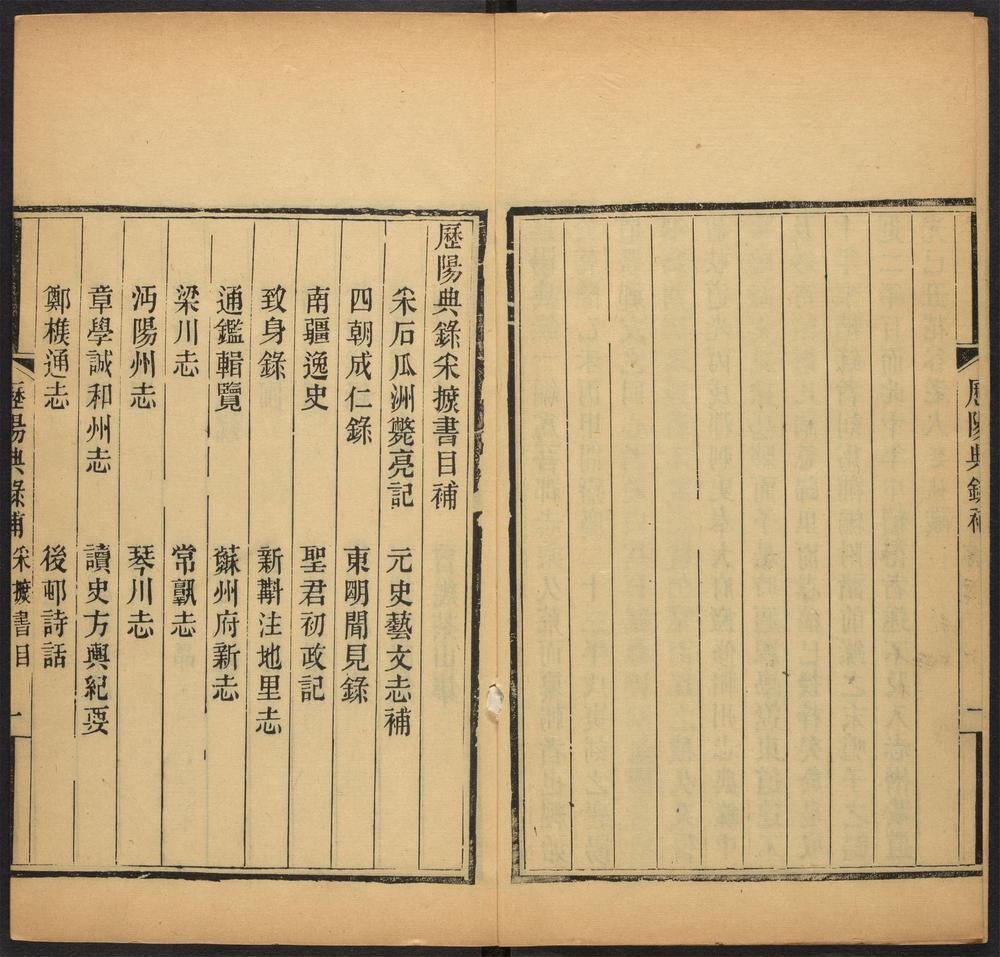 歷陽典錄補
一
歷陽典錄采摭書目補
采石瓜洲斃亮記　元史藝文志補
四朝成仁錄　東明聞見錄
南疆逸史　聖君初政記
致身錄　新斠注地里志
通鑑輯覽　蘇州府新志
梁川志　常熟志
沔陽州志　琴川志
章學誠和州志　讀史方輿紀要
鄭樵通志　後邨詩話
歷陽典錄補　采摭書目　一